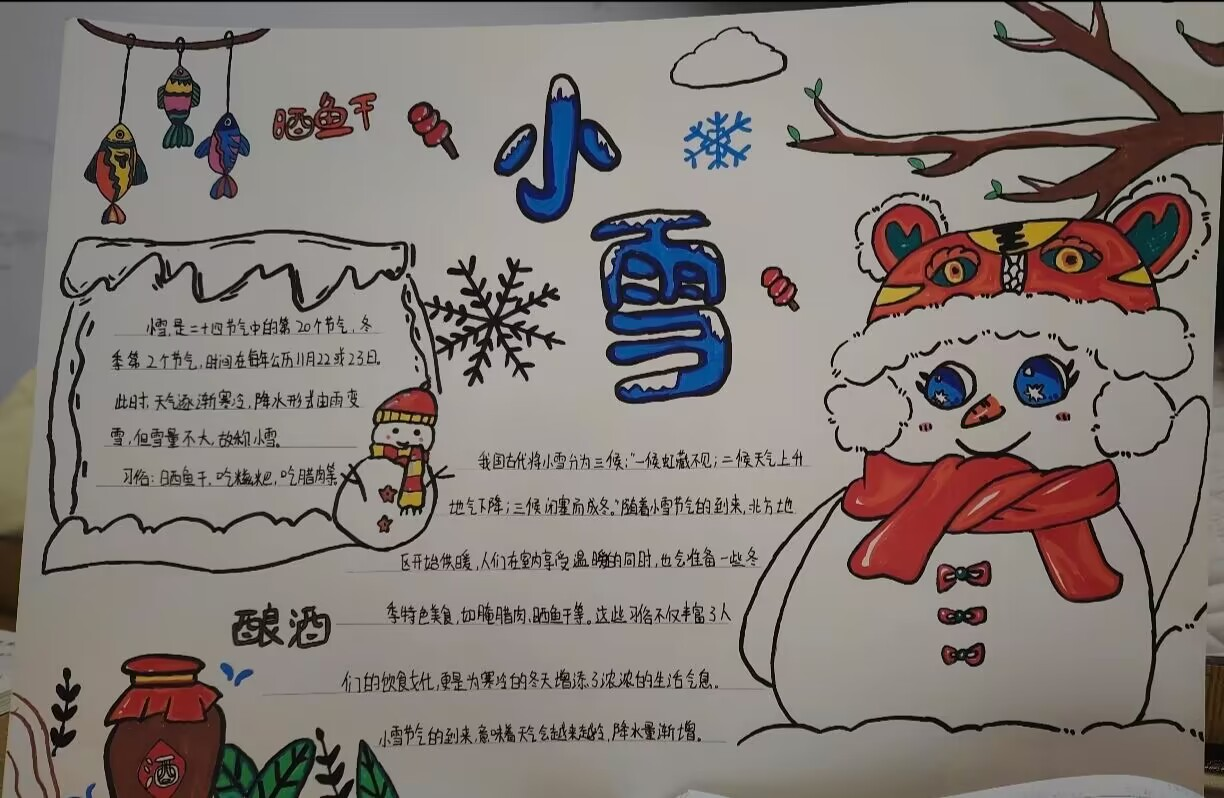 晒鱼干
小
雪
小雪,是二十四节气中的第20个节气,冬
季第2个节气,时间在每年公历11月22或23日。
此时,天气逐渐寒冷,降水形式由雨变
雪,但雪量不大,故称小雪。
习俗:晒鱼干,吃糍粑,吃腊肉等
我国古代将小雪分为三候:"一候虹藏不见;二候天气上升
地气下降;三候闭塞而成冬。"随着小雪节气的到来,北方地
区开始供暖,人们在室内享受温暖的同时,也会准备一些冬
季特色美食,如腌腊肉、晒鱼干等。这些习俗不仅丰富了人
们的饮食文化,更是为寒冷的冬天增添了浓浓的生活气息。
小雪节气的到来,意味着天气会越来越冷,降水量渐增。
酿酒
酒